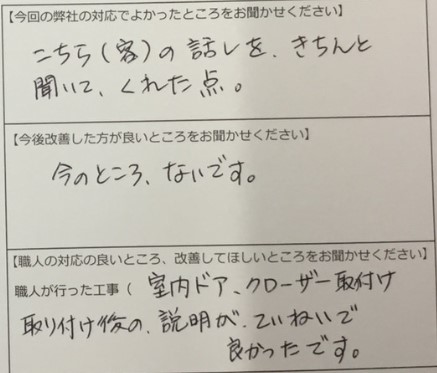 【今回の弊社の対応でよかったところをお聞かせください】
こちら(客)の話しを、きちんと
聞いて、くれた点。
【今後改善した方が良いところをお聞かせください】
今のところ、ないです。
【職人の対応の良いところ、改善してほしいところをお聞かせください】
職人が行った工事( 室内ドア、クローザー取付け
取り付け後の、説明が、ていねいで
良かったです。